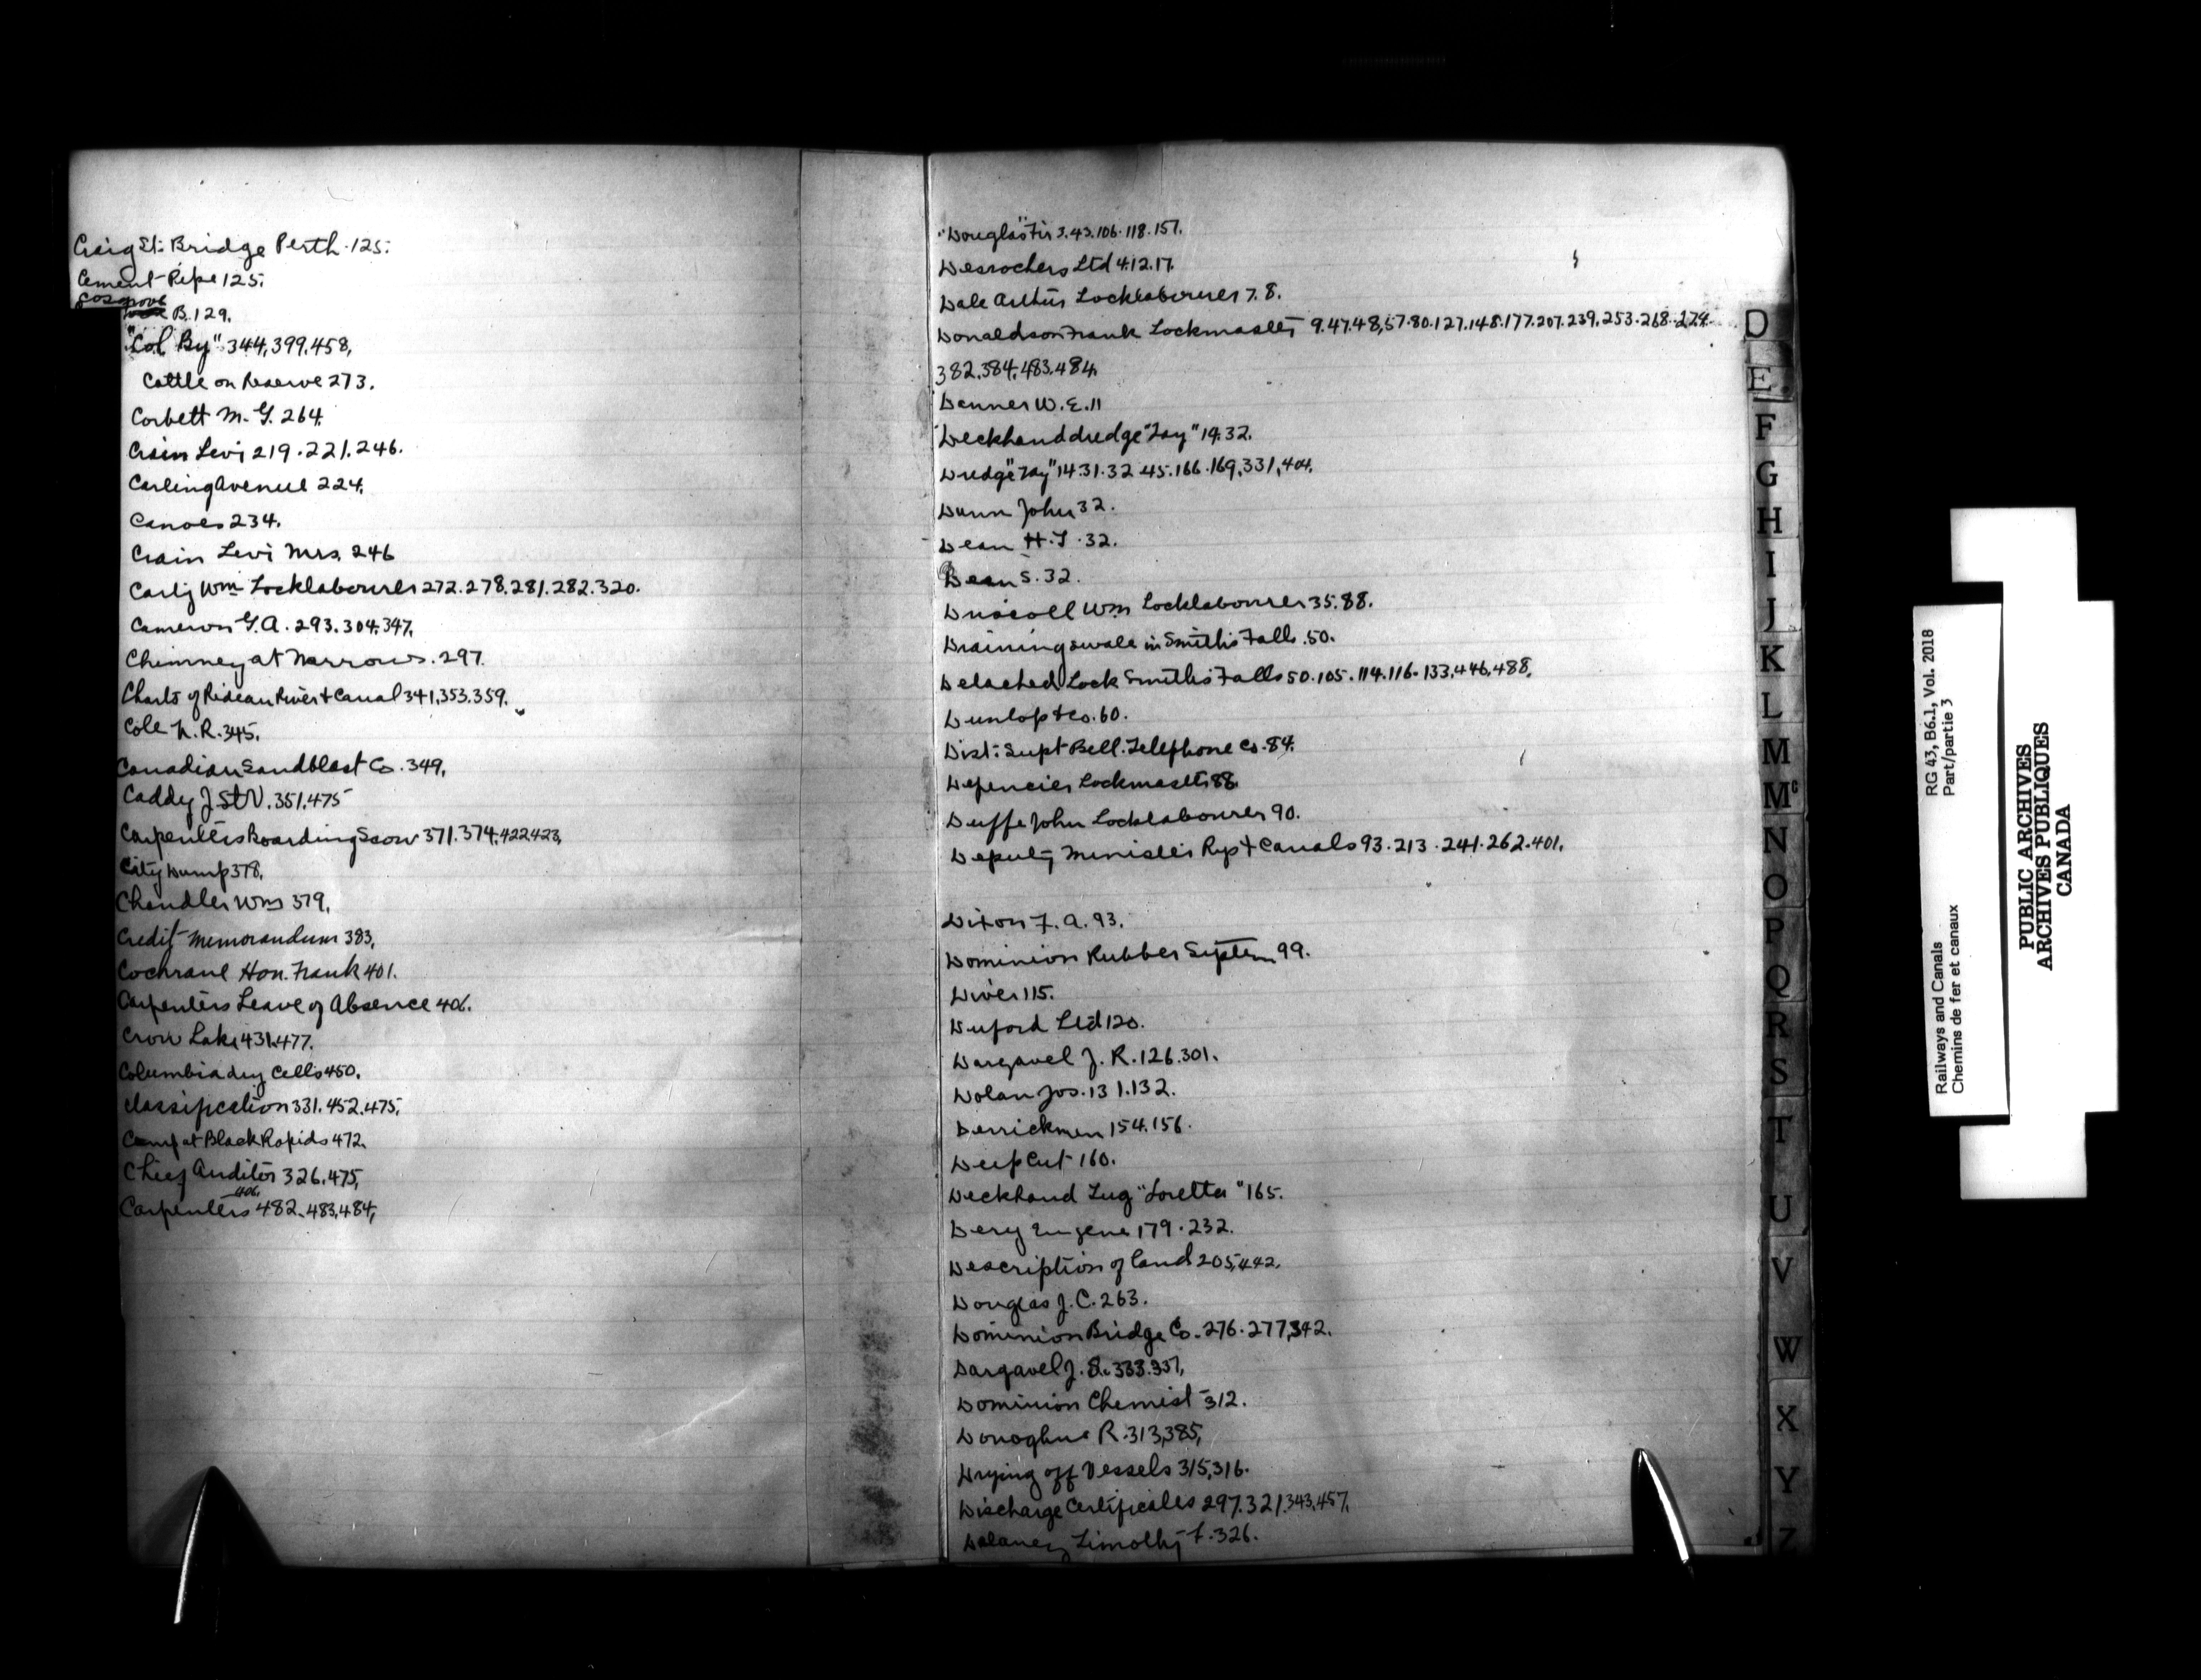 Craig St. Bridge Perth. 125.
Cement Pipe 125.
Cosgrove
B. 129.
"Col By" 344, 399, 458,
Cattle on Reserve 273.
Corbett M. G. 264.
Crain Levi 219. 221. 246.
Carling Avenue 224.
Canoes 234.
Crain Levi Mrs. 246
Carty Wm Locklabourer 272. 278. 281. 282. 320.
Cameron G. A. 293. 304. 347,
Chimney at Narrows. 297.
Charts of Rideau River & Canal 341, 353. 359.
Cole N. R. 345.
Canadian Sandblast Co. 349,
Caddy J. St V. 351, 475
Carpenters Boarding Scow 371. 374, 422, 423,
City Dump 378.
Chandler Wm 379,
Credit Memorandum 383,
Cochrane Hon. Frank 401.
Carpenters Leave of Absence 406.
Crow Lake 431. 477.
Columbia dry Cells 450.
Classification 331. 452. 475,
Camp at Black Rapids 472.
Chief Auditor 326, 475,
406,
Carpenters 482. 483, 484,
"Douglas" Fir 3. 43. 106. 118. 157.
Desrochers Ltd 4. 12. 17.
Dale Arthur Locklabourer 7. 8.
Donaldson Frank Lockmaster 9. 47. 48, 57. 80. 127. 148. 177. 207. 239. 253. 268. 274.
382. 384. 483. 484.
Denner W. E. 11
Deckhand dredge "Tay" 14. 32.
Dredge "Tay" 14. 31. 32. 45. 166. 169, 331, 404.
Dunn John 32.
Dean H. T. 32.
Dean S. 32.
Driscoll Wm Locklabourer 35. 88.
Draining swale in Smiths Falls. 50.
Detached Lock Smiths Falls 50. 105. 114. 116. 133, 446, 488,
Dunlop & Co. 60.
Dist: Supt Bell. Telephone Co. 84.
Depencier Lockmaster 88.
Duffe John Locklabourer 90.
Deputy Minister Rys & Canals 93. 213. 241. 262. 401.
Dixon F. A. 93.
Dominion Rubber System 99.
Diver 115.
Duford Ltd 120.
Dargavel J. R. 126. 301.
Dolan Jos. 131. 132.
Derrickmen 154. 156.
Deep Cut 160.
Deckhand Tug "Loretta" 165.
Dery Eugene 179. 232.
Description of land 205, 442.
Douglas J. C. 263.
Dominion Bridge Co. 276. 277, 342.
Dargavel J. S. 333. 337,
Dominion Chemist 312.
Donoghue R. 313, 385,
Drying off Vessels 315, 316.
Discharge Certificates 297. 321. 343, 457,
Delaney Timothy F. 326.
D
E
F
G
H
I
J
K
L
M
Mc
N
O
P
Q
R
S
T
U
V
W
X
Y
Z
Railways and Canals RG 43, B6.1, Vol. 2018
Chemins de fer et canaux Part/partie 3
PUBLIC ARCHIVES
ARCHIVES PUBLIQUES
CANADA